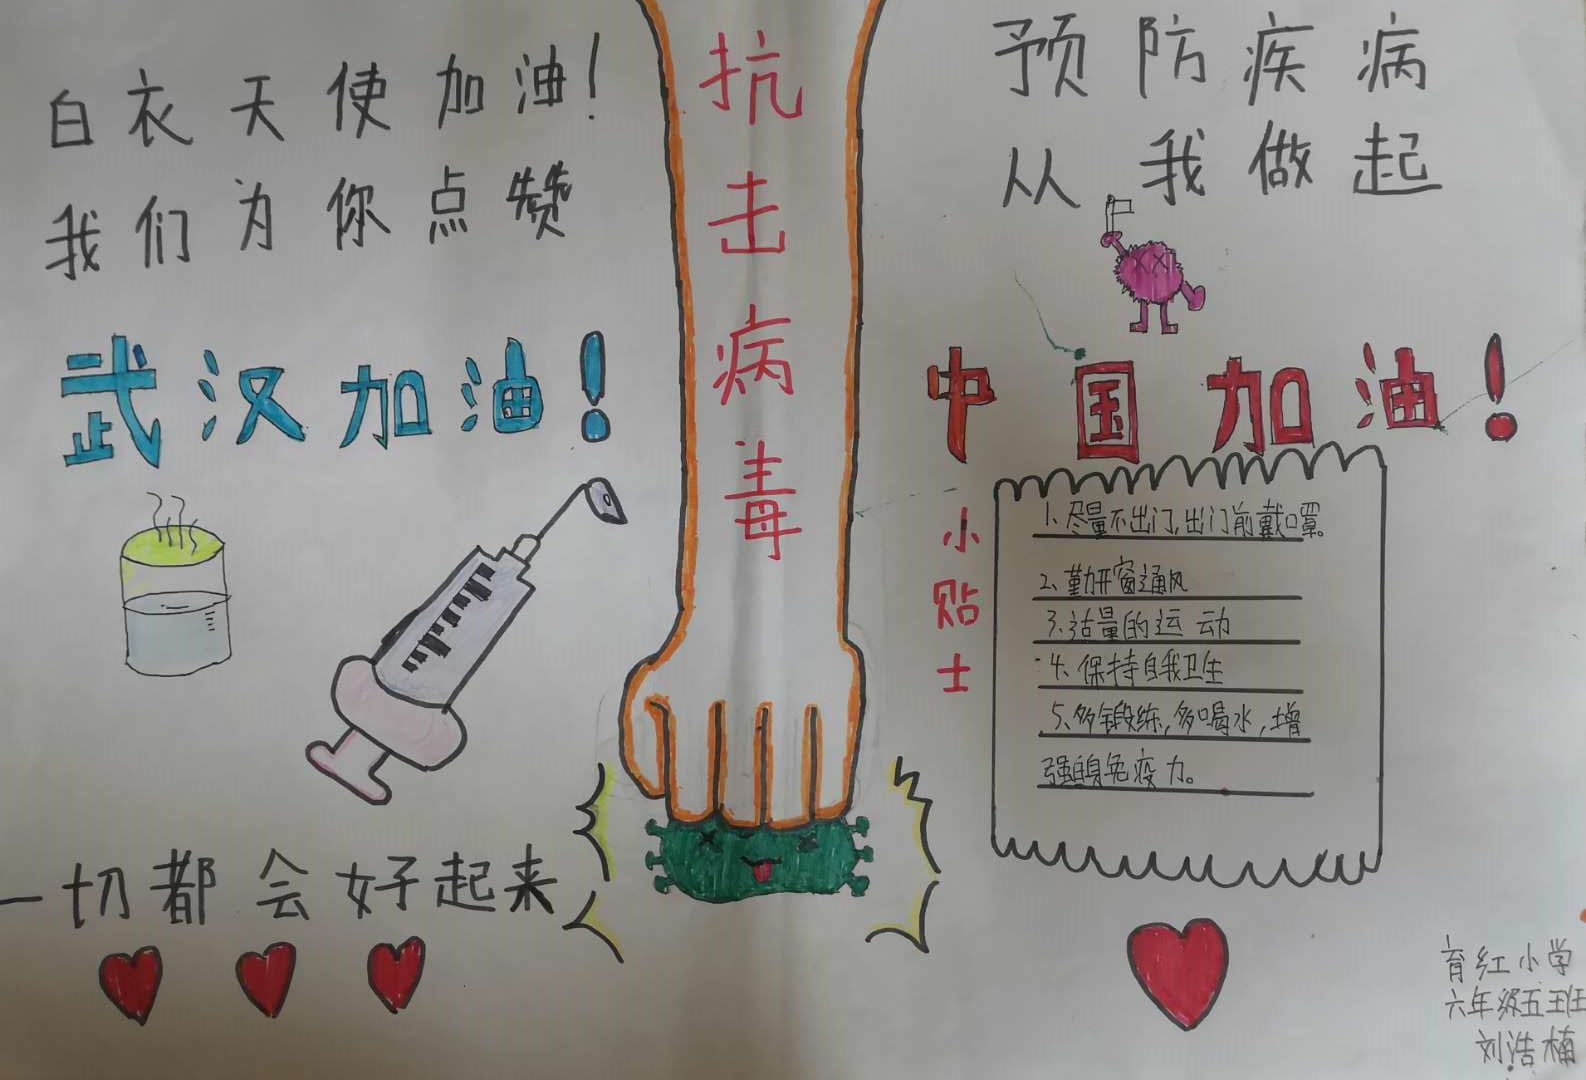 白衣天使加油!
我们为你点赞
武汉加油!
一切都会好起来
抗击病毒
预防疾病
从我做起
中国加油!
小贴士
1、尽量不出门,出门前戴口罩。
2、勤开窗通风
3、适量的运动
4、保持自我卫生
5、多锻练,多喝水,增
强自身免疫力。
育红小学
六年级五班
刘浩楠